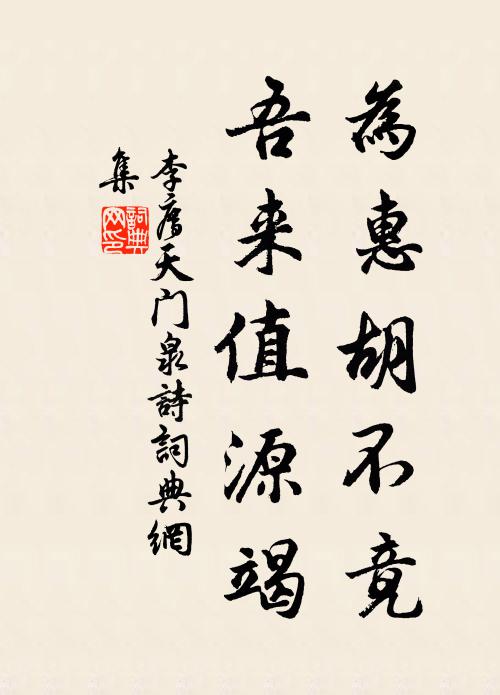 為惠胡不竟
吾来值源竭
李廌天門泉詩詞典網
集
詞典
网印